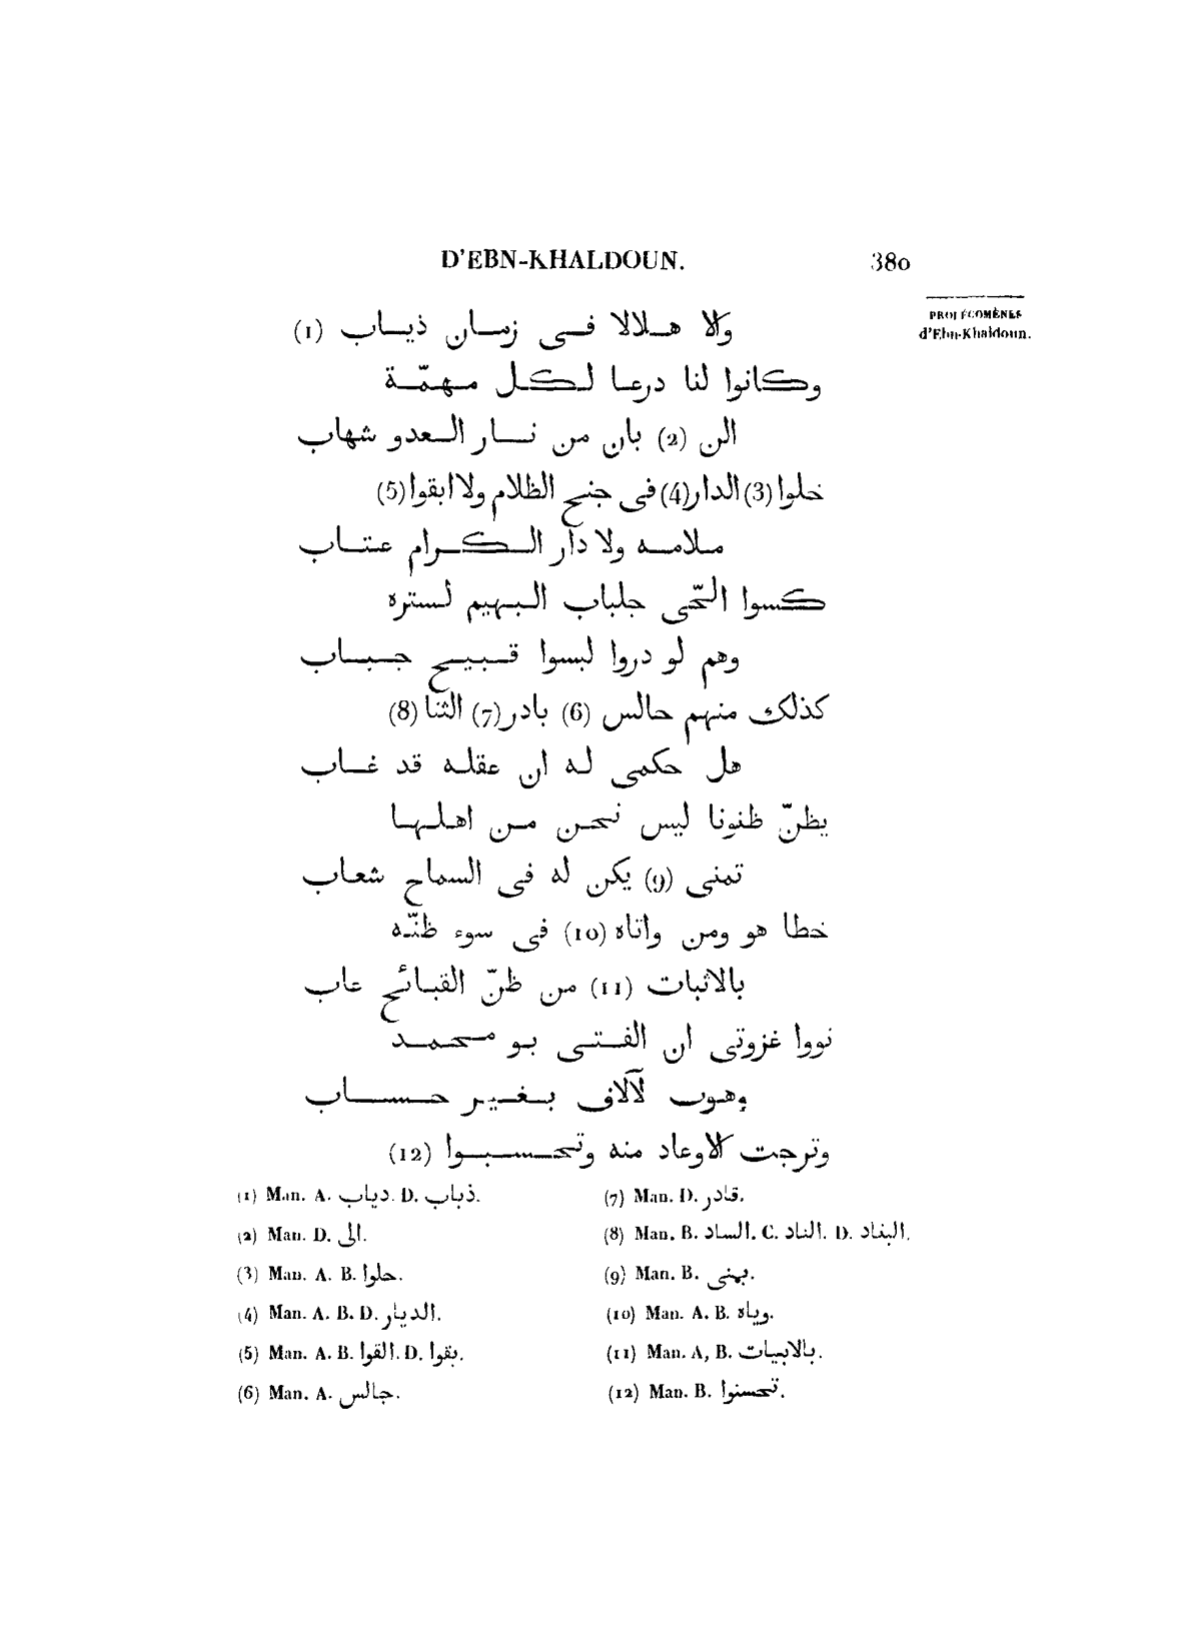 D'EBN-KHALDOUN. 380
PROLÉGOMÈNES
d'Ebn-Khaldoun.
ولا هلالا فى زمان ذياب (1)
وكانوا لنا درعا لكل مهمّة
الن (2) بان من نار العدو شهاب
خلوا (3) الدار (4) فى جنح الظلام ولا ابقوا (5)
ملامه ولا دار الكرام عتاب
كسوا الحّى جلباب البهيم لستره
وهم لو دروا لبسوا قبيح جباب
كذلك منهم حالس (6) بادر (7) الثنا (8)
هل حكمى له ان عقله قد غاب
يظنّ ظنونا ليس نحن من اهلها
تمنى (9) يكن له فى السماح شعاب
خطا هو ومن واتاه (10) فى سوء ظنّه
بالاثبات (11) من ظنّ القبائح عاب
نووا غزوتى ان الفتى بو محمد
وهوب لآلاف بغير حساب
وترجت كلاوعاد منه وتحسبوا (12)
(1) Man. A. دياب. D. ذباب.
(2) Man. D. الى.
(3) Man. A. B. حلوا.
(4) Man. A. B. D. الديار.
(5) Man. A. B. القوا. D. بقوا.
(6) Man. A. جالس.
(7) Man. D. قادر.
(8) Man. B. الساد. C. الناد. D. البناد.
(9) Man. B. بهنى.
(10) Man. A. B. وياه.
(11) Man. A, B. بالابيات.
(12) Man. B. تحسنوا.